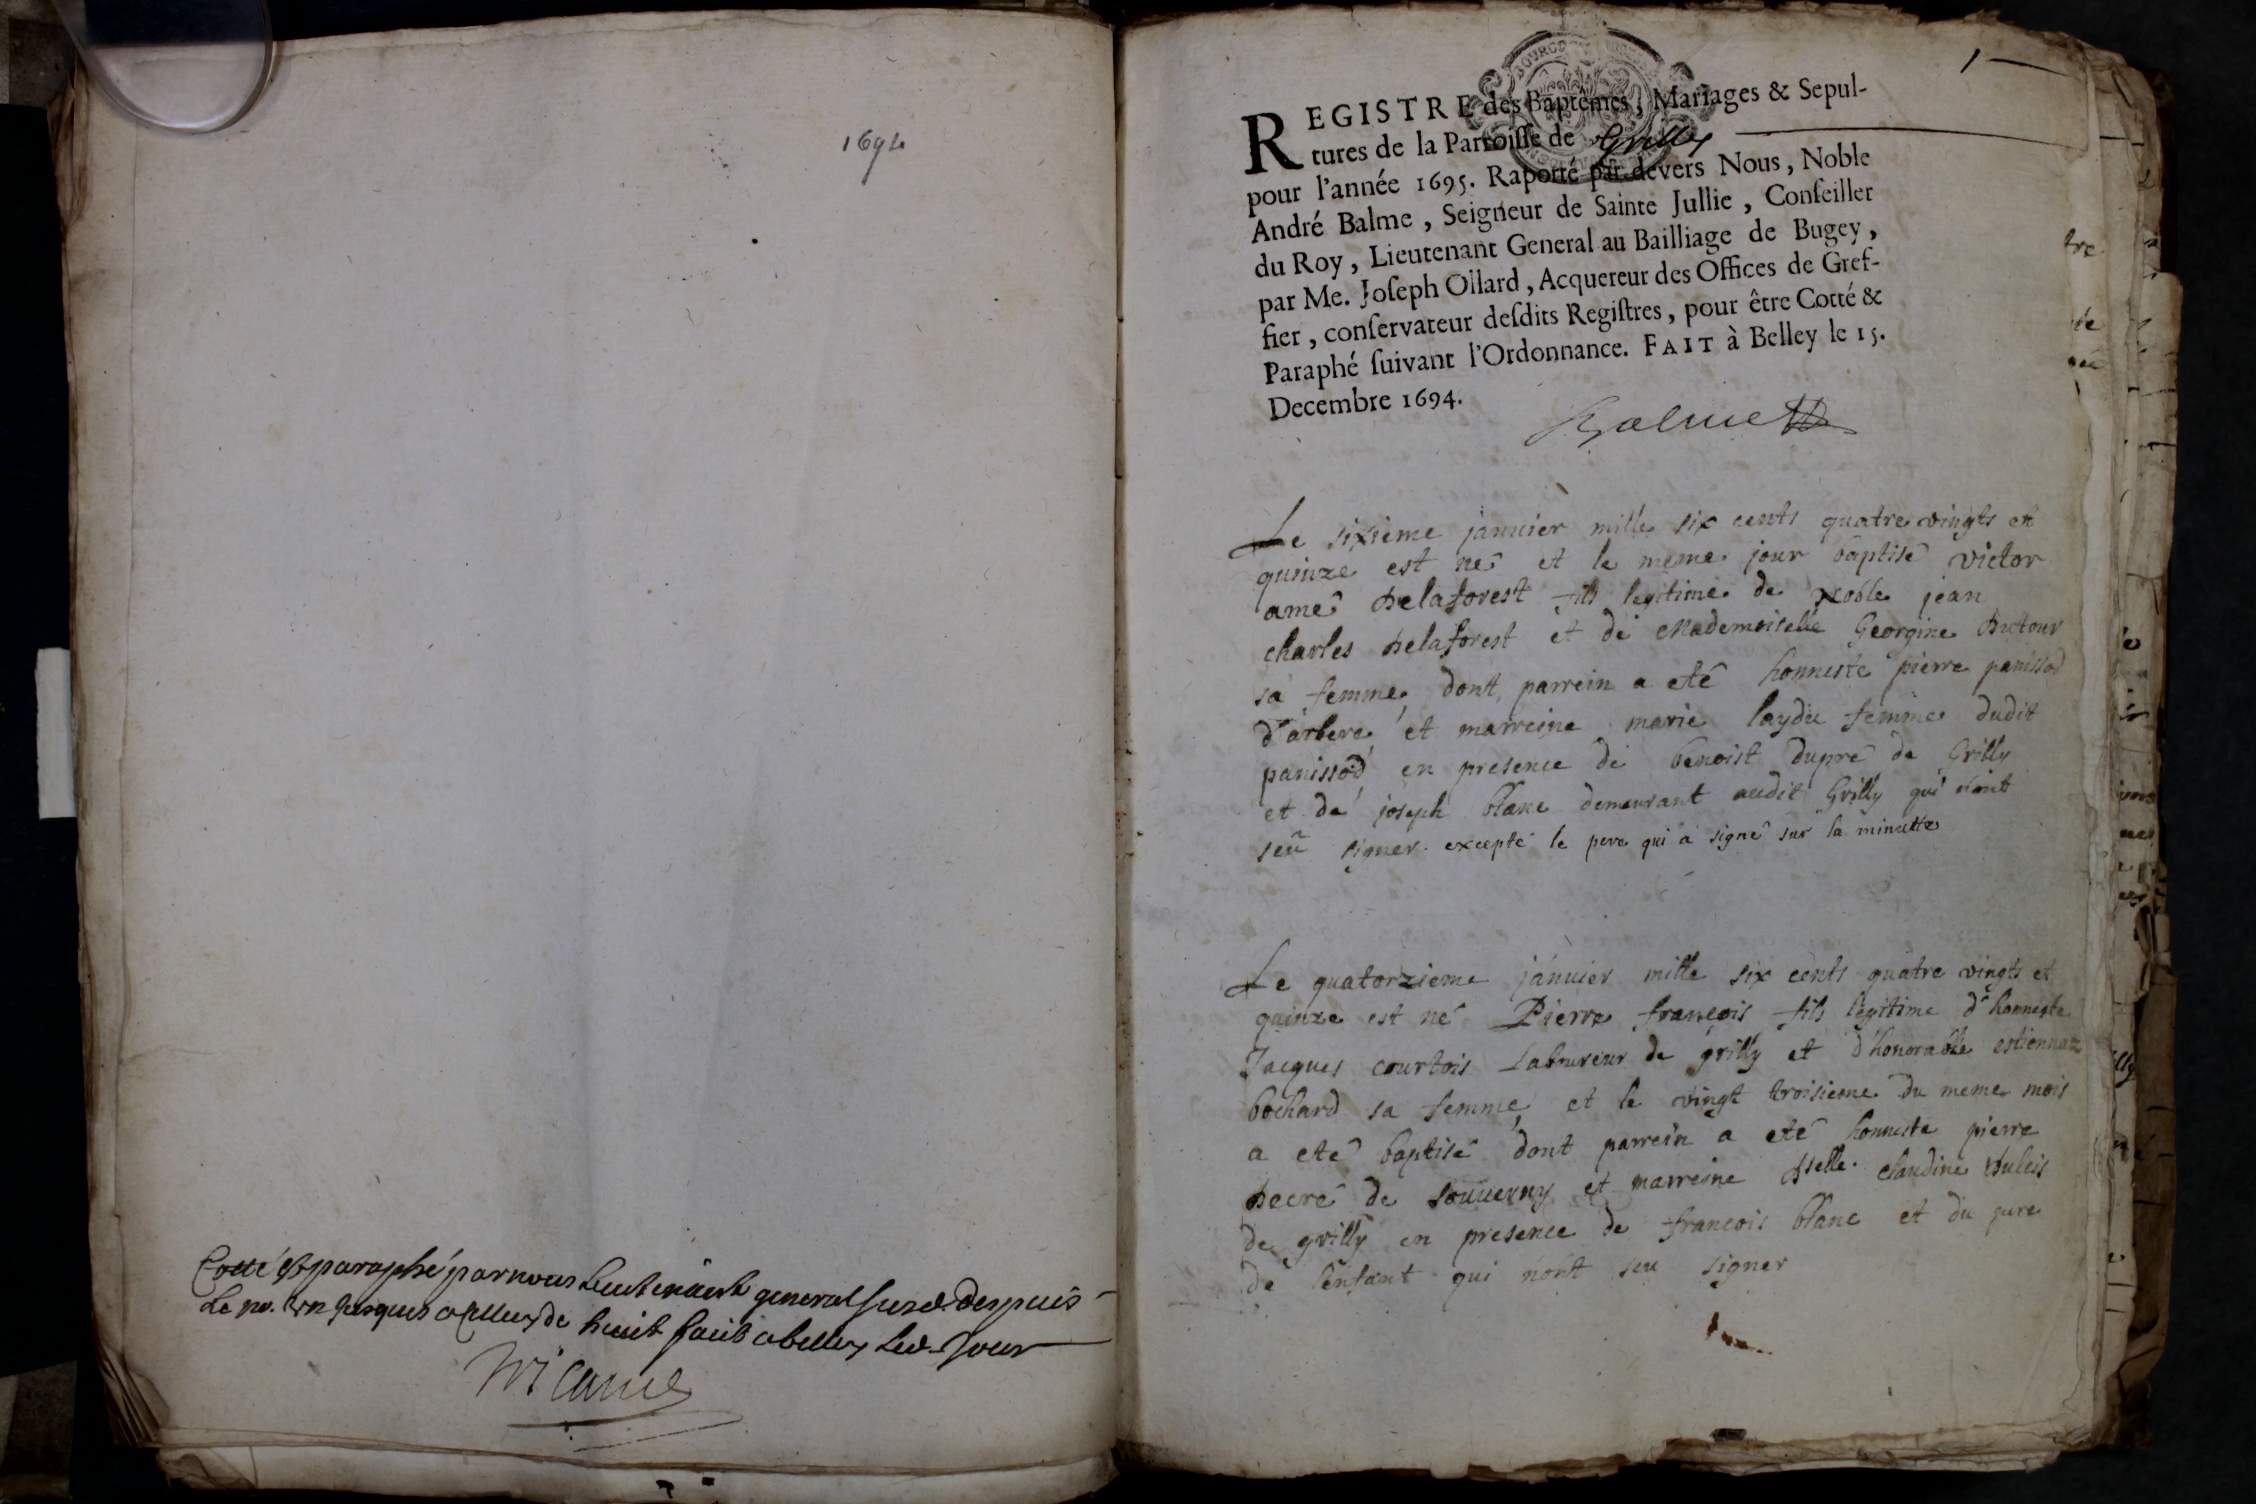 1694
Cotté & paraphé par nous Lieutenant general susd. despuis
le no. un jusques a celluy de huit fait a belley led. jour
1
REGISTRE des Baptêmes, Mariages & Sepul-
tures de la Parroisse de Grilly
pour l'année 1695. Raporté par devers Nous, Noble
André Balme, Seigneur de Sainte Jullie, Conseiller
du Roy, Lieutenant General au Bailliage de Bugey,
par Me. Joseph Ollard, Acquereur des Offices de Gref-
fier, conservateur desdits Registres, pour être Cotté &
Paraphé suivant l'Ordonnance. FAIT à Belley le 15.
Decembre 1694.
Balme
Le sixieme janvier mille six cents quatre vingts et
quinze est né et le meme jour baptisé victor
amé Delaforest fils legitime de Noble jean
charles Delaforest et de Mademoiselle Georgine Dutour
sa femme, dont parrein a eté honneste pierre panissod
d'arbere et marreine marie laydu femme dudit
panissod, en presence de benoist dupré de Grilly
et de joseph blanc demeurant audit Grilly qui n'ont
seû signer excepté le pere qui a signé sur la minutte
Le quatorzieme janvier mille six cents quatre vingts et
quinze est né Pierre francois fils legitime d'honneste
Jacques courtois Laboureur de grilly et d'honorable estiennaz
bochard sa femme, et le vingt troisieme du meme mois
a eté baptisé dont parrein a eté honneste pierre
Decré de souverny et marreine Dlle. claudine
de grilly en presence de francois blanc et du pere
de l'enfant qui n'ont seu signer